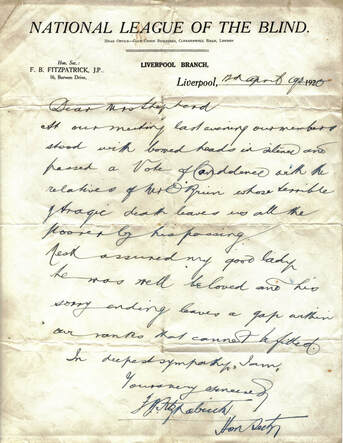 NATIONAL LEAGUE OF THE BLIND.
HEAD OFFICE—CLUB UNION BUILDINGS, CLERKENWELL ROAD, LONDON
Hon. Sec.:
F. B. FITZPATRICK, J.P.,
LIVERPOOL BRANCH.
Liverpool, April 1920
Dear Mrs Shepherd
At our meeting last evening our members
stood with bowed heads in silence and
passed a Vote of Condolence with the
relatives of Mr O'Brien whose terrible
& tragic death leaves us all the
poorer by his passing.
Rest assured my good lady
he was well beloved and his
sorry ending leaves a gap within
our ranks that cannot be filled
In deepest sympathy, I am,
Yours very sincerely
F B Fitzpatrick
Hon Secty